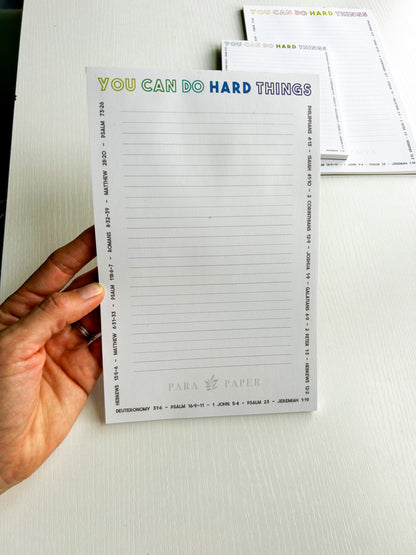 YOU CAN DO HARD THINGS
YOU CAN DO HARD THINGS
YOU CAN DO HARD THINGS
PHILIPPIANS 4:13 - ISAIAH 41:10 - 2 CORINTHIANS 12:9 - JOSHUA 1:9 - GALATIANS 6:9 - 2 PETER 1:3 - HEBREWS 12:2
HEBREWS 13:5-6 - MATTHEW 6:31-33 - PSALM 118:6-7 - ROMANS 8:32-39 - MATTHEW 28:20 - PSALM 73:26
PARA PAPER
DEUTERONOMY 31:6 - PSALM 16:9-11 - 1 JOHN 5:4 - PSALM 23 - JEREMIAH 1:19
PAPER